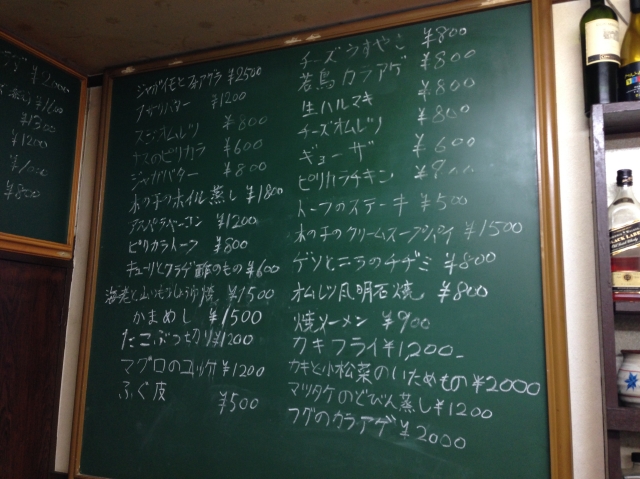 ¥2000
¥1600
¥1300
¥1200
¥1000
¥800
ジャガイモとフォアグラ ¥2500
アサリバター ¥1200
スジオムレツ ¥800
ナスのピリカラ ¥600
ジャガバター ¥800
木の子のホイル蒸し ¥1800
¥1200
ピリカラトーフ ¥800
キューリとクラゲ酢のもの ¥600
海老と山いもしょうが焼 ¥1500
かまめし ¥1500
たこぶつ切り ¥1200
マグロのユッケ ¥1200
ふぐ皮 ¥500
チーズうすやき ¥800
若鳥カラアゲ ¥800
生ハルマキ ¥800
チーズオムレツ ¥800
ギョーザ ¥600
ピリカラチキン ¥900
トーフのステーキ ¥500
木の子のクリームスープパイ ¥1500
ゲソとニラのチヂミ ¥800
オムレツ風明石焼 ¥800
焼ソーメン ¥900
カキフライ ¥1200-
カキと小松菜のいためもの ¥2000
マツタケのどびん蒸し ¥1200
フグのカラアゲ ¥2000
BLACK LABEL